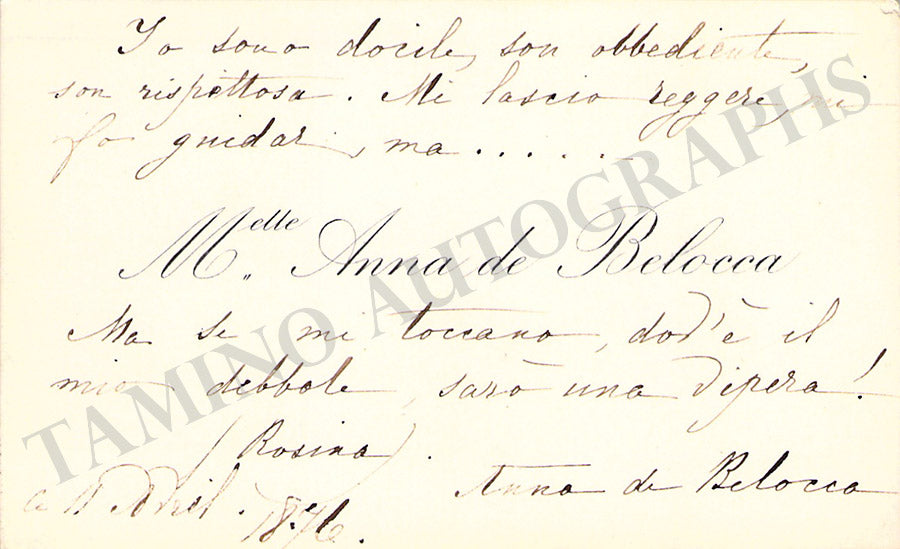 Yo sono docile, son obbediente,
son rispettosa. Mi lascio reggere, mi
fo guidar, ma......
Melle Anna de Belocca
Ma se mi toccano, dov'è il
mio debbole, sarò una vipera!
(Rosina).
Avril. 1876.
Anna de Belocca
TAMINO AUTOGRAPHS